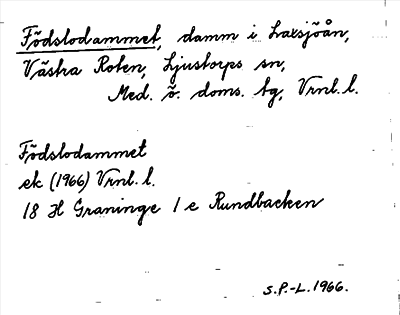 Födslodammet, damm i Laxsjöån,
Västra Roten, Ljustorps sn,
Med. ö. doms. tg, Vrnl. l.
Födslodammet
ek (1966) Vrnl. l.
18 H Graninge 1 e Rundbacken
S.P.-L. 1966.